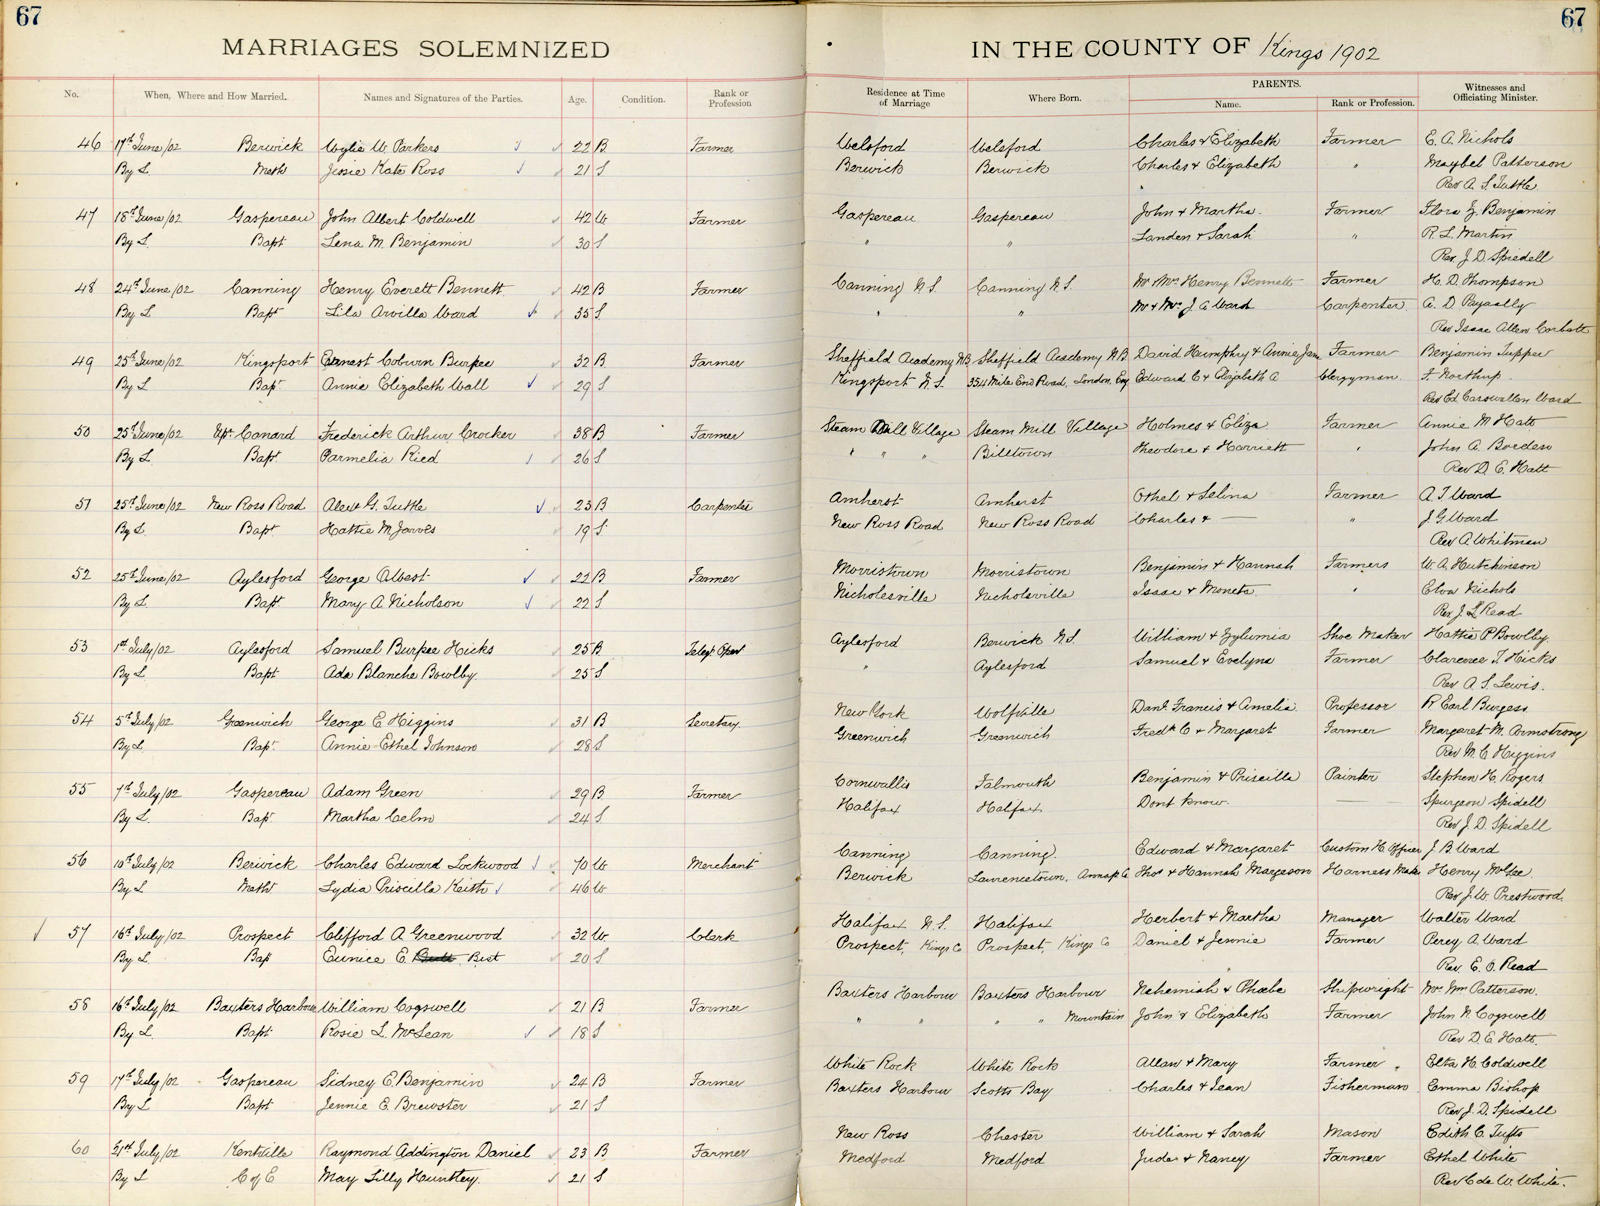 67
67
MARRIAGES SOLEMNIZED IN THE COUNTY OF Kings 1902
No. When, Where and How Married. Names and Signatures of the Parties. Age. Condition. Rank or Profession Residence at Time of Marriage Where Born. PARENTS. Name. Rank or Profession. Witnesses and Officiating Minister.
46 17th June/02 Berwick Wylie W. Parkers 22 B Farmer Welsford Welsford Charles & Elizabeth Farmer E. A. Nichols
By L. Meth Jessie Kate Ross 21 S Berwick Berwick Charles & Elizabeth " Maybel Patterson
Rev A. S. Tuttle
47 18th June/02 Gaspereau John Albert Coldwell 42 W Farmer Gaspereau Gaspereau John & Martha. Farmer Flora Z. Benjamin
By L. Bapt Lena M. Benjamin 30 S " " Landen & Sarah " R. L. Martin
Rev. J. D. Spidell
48 24th June/02 Canning Henry Everett Bennett 42 B Farmer Canning N.S. Canning N.S. Mr & Mrs Henry Bennett Farmer H. D. Thompson
By L Bapt Lila Arvilla Ward 35 S " " Mr & Mrs J. C Ward Carpenter A. D
Rev Isaac Allen Corbett
49 25th June/02 Kingsport Ernest Coburn Burpee 32 B Farmer Sheffield Academy N.B Sheffield Academy N.B David Humphry & Annie Jane Farmer Benjamin Tupper
By L Bapt Annie Elizabeth Wall 29 S Kingsport N.S. 354 Mile End Road, London, Eng Edward C & Elizabeth A Clergyman. F. Northup
Rev Ed Ward
50 25th June/02 Upr Canard Frederick Arthur Crocker 38 B Farmer Steam Mill Village Steam Mill Village Holmes & Eliza Farmer Annie M Hatt
By L Bapt Parmelia Ried 26 S " " " Billtown Theodore & Harriett " John A. Borden
Rev D. E. Hatt
51 25th June/02 New Ross Road Alex G. Tuttle 23 B Carpenter Amherst Amherst Othel & Selina Farmer A. T Ward
By L. Bapt Hattie M Jarvis 19 S New Ross Road New Ross Road Charles & — " J. G Ward
Rev A Whitman
52 25th June/02 Aylesford George Albest 22 B Farmer Morristown Morristown Benjamin & Hannah Farmers W. A. Hutchinson
By L. Bapt Mary A. Nicholson 22 S Nicholesville Nicholsville Isaac & Moneta " Elva Nichols
Rev J. L Read
53 1st July/02 Aylesford Samuel Burpee Hicks 25 B Telegh Oper Aylesford Berwick N.S. William & Zylumia Shoe Maker Hattie P Bowlby
By L. Bapt Ada Blanche Bowlby 25 S " Aylesford Samuel & Evelyne Farmer Clarence T. Hicks
Rev A. S. Lewis.
54 5th July/02 Greenwich George E Higgins 31 B Secretary New York Wolfville Danl Francis & Amelia Professor R Earl Burgess
By L. Bapt Annie Ethel Johnson 28 S Greenwich Greenwich Fredk C & Margaret Farmer Margaret M. Armstrong
Rev M. C Higgins
55 7th July/02 Gaspereau Adam Green 29 B Farmer Cornwallis Falmouth Benjamin & Priscilla Painter Stephen H. Rogers
By L. Bapt Martha Celm 24 S Halifax Halifax Dont know — Spurgeon Spidell
Rev J. D. Spidell
56 10th July/02 Berwick Charles Edward Lockwood 70 W Merchant Canning Canning. Edward & Margaret Custom H. Officer J. B Ward
By L Meth Lydia Priscilla Keith 46 W Berwick Lawrencetown, Annap Co Thos & Hannah Margeson Harness Maker Henry McGee.
Rev J. W. Prestwood.
57 16th July/02 Prospect Clifford A Greenwood 32 W Clerk Halifax N.S. Halifax Herbert & Martha Manager Walter Ward
By L. Bap Eunice E. Best 20 S Prospect, Kings Co Prospect, Kings Co Daniel & Jennie Farmer Percy A. Ward
Rev. E. O. Read
58 16th July/02 Baxters Harbour William Cogswell 21 B Farmer Baxters Harbour Baxters Harbour Nehemiah & Phoebe Shipwright Mrs Wm Patterson.
By L. Bapt Rosie L. McLean 18 S " " " " Mountain John & Elizabeth Farmer John N. Cogswell
Rev D. E Hatt.
59 17th July/02 Gaspereau Sidney E. Benjamin 24 B Farmer White Rock White Rock Allan & Mary Farmer Elta H. Coldwell
By L Bapt Jennie E. Brewster 21 S Baxters Harbour Scotts Bay Charles & Jean Fisherman Emma Bishop
Rev J. D. Spidell
60 21st July/02 Kentville Raymond Addington Daniel 23 B Farmer New Ross Chester William & Sarah Mason Edith C. Tufts
By L C of E May Lilly Huntley. 21 S Medford Medford Judar & Nancy Farmer Ethel White
Rev C de W. White.